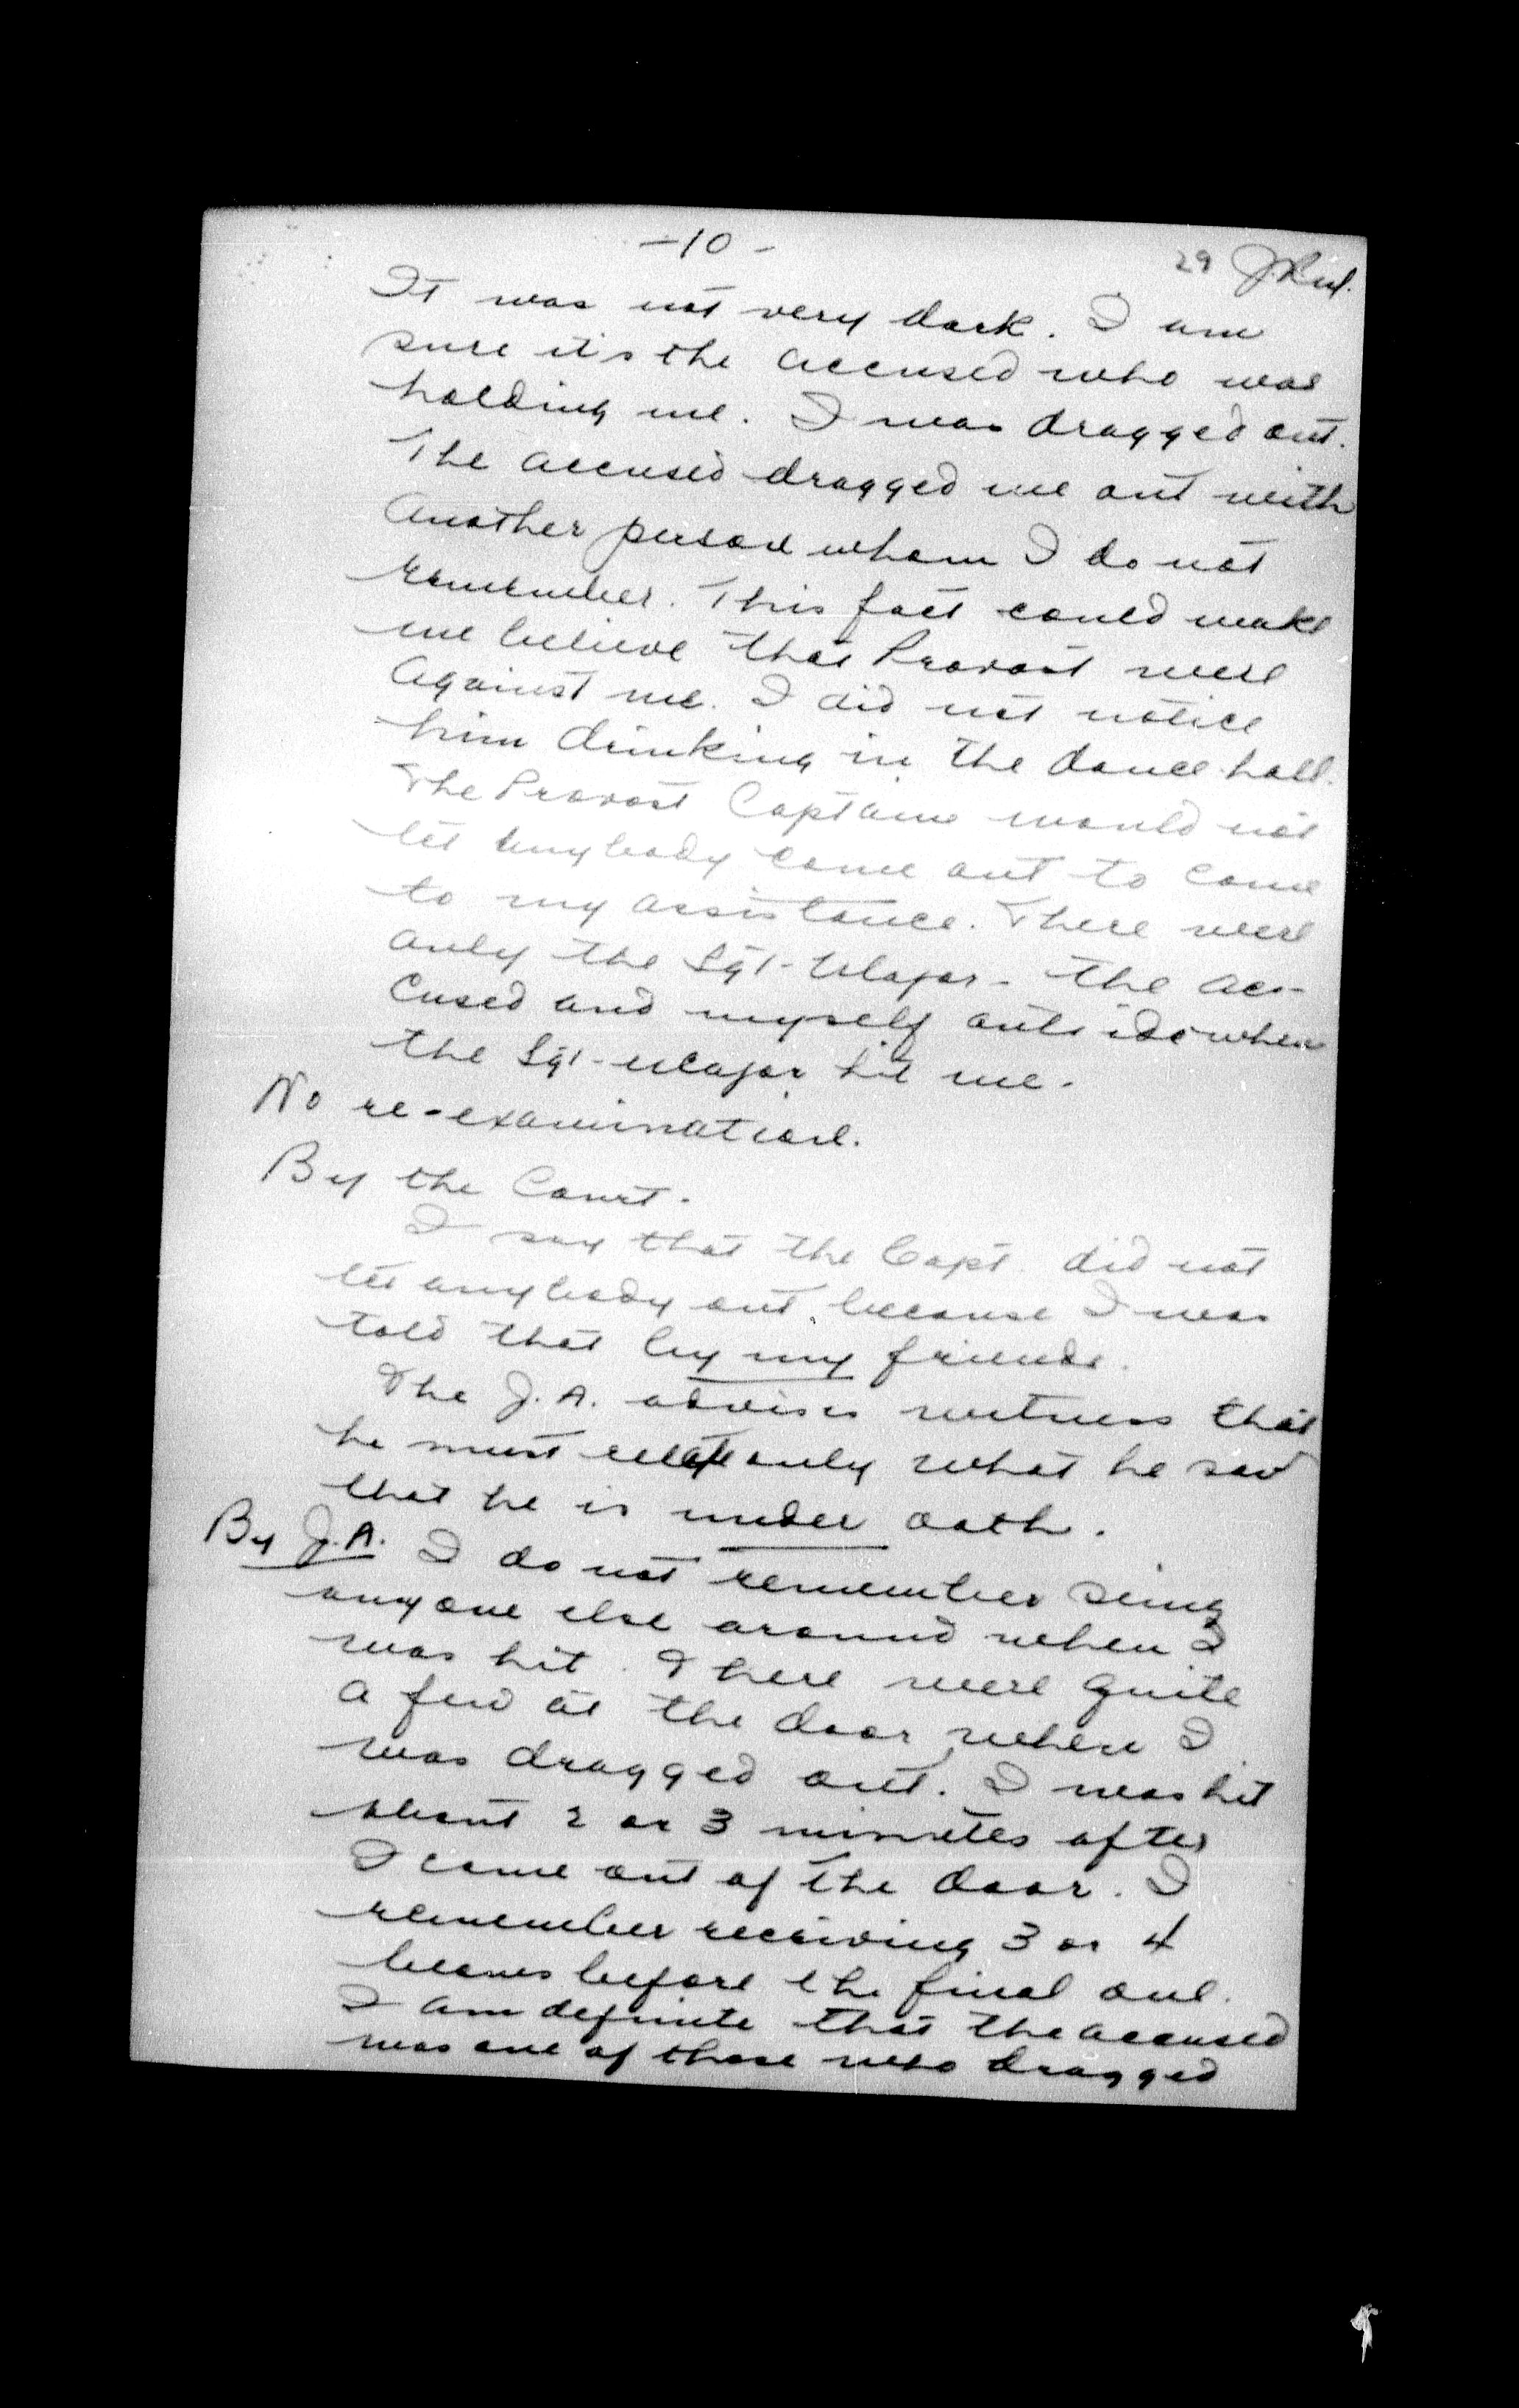 -10-
29
It was not very dark. I am
sure it's the accused who was
holding me. I was dragged out.
The accused dragged me out with
another person whom I do not
remember. This fact could make
me believe that Provost were
against me. I did not notice
him drinking in the dance hall.
The Provost Captain would not
let anybody come out to come
to my assistance. There were
only the Sgt-Major - the ac-
cused and myself outside when
the Sgt-Major hit me.
No re-examination.
By the Court.
I say that the Capt. did not
let anybody out, because I was
told that by my friends.
The J.A. advises witness that
he must relate only what he saw
that he is under oath.
By J.A. I do not remember seing
anyone else around when I
was hit. There were quite
a few at the door when I
was dragged out. I was hit
about 2 or 3 minutes after
I came out of the door. I
remember receiving 3 or 4
blows before the final one.
I am definite that the accused
was one of those who dragged